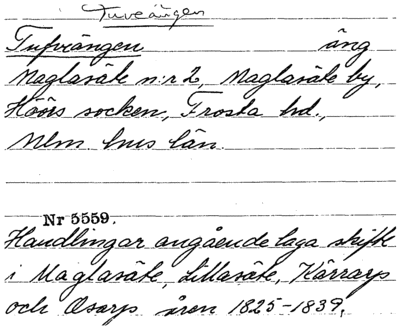 Tuveängen
Tufveängen äng
Maglasäte n:r 2, Maglasäte by,
Höörs socken, Frosta hd.,
Mlm hus län.
Nr 5559.
Handlingar angående laga skifte
i Maglasäte, Lillasäte, Kärrarp
och Osarp åren 1825-1839,